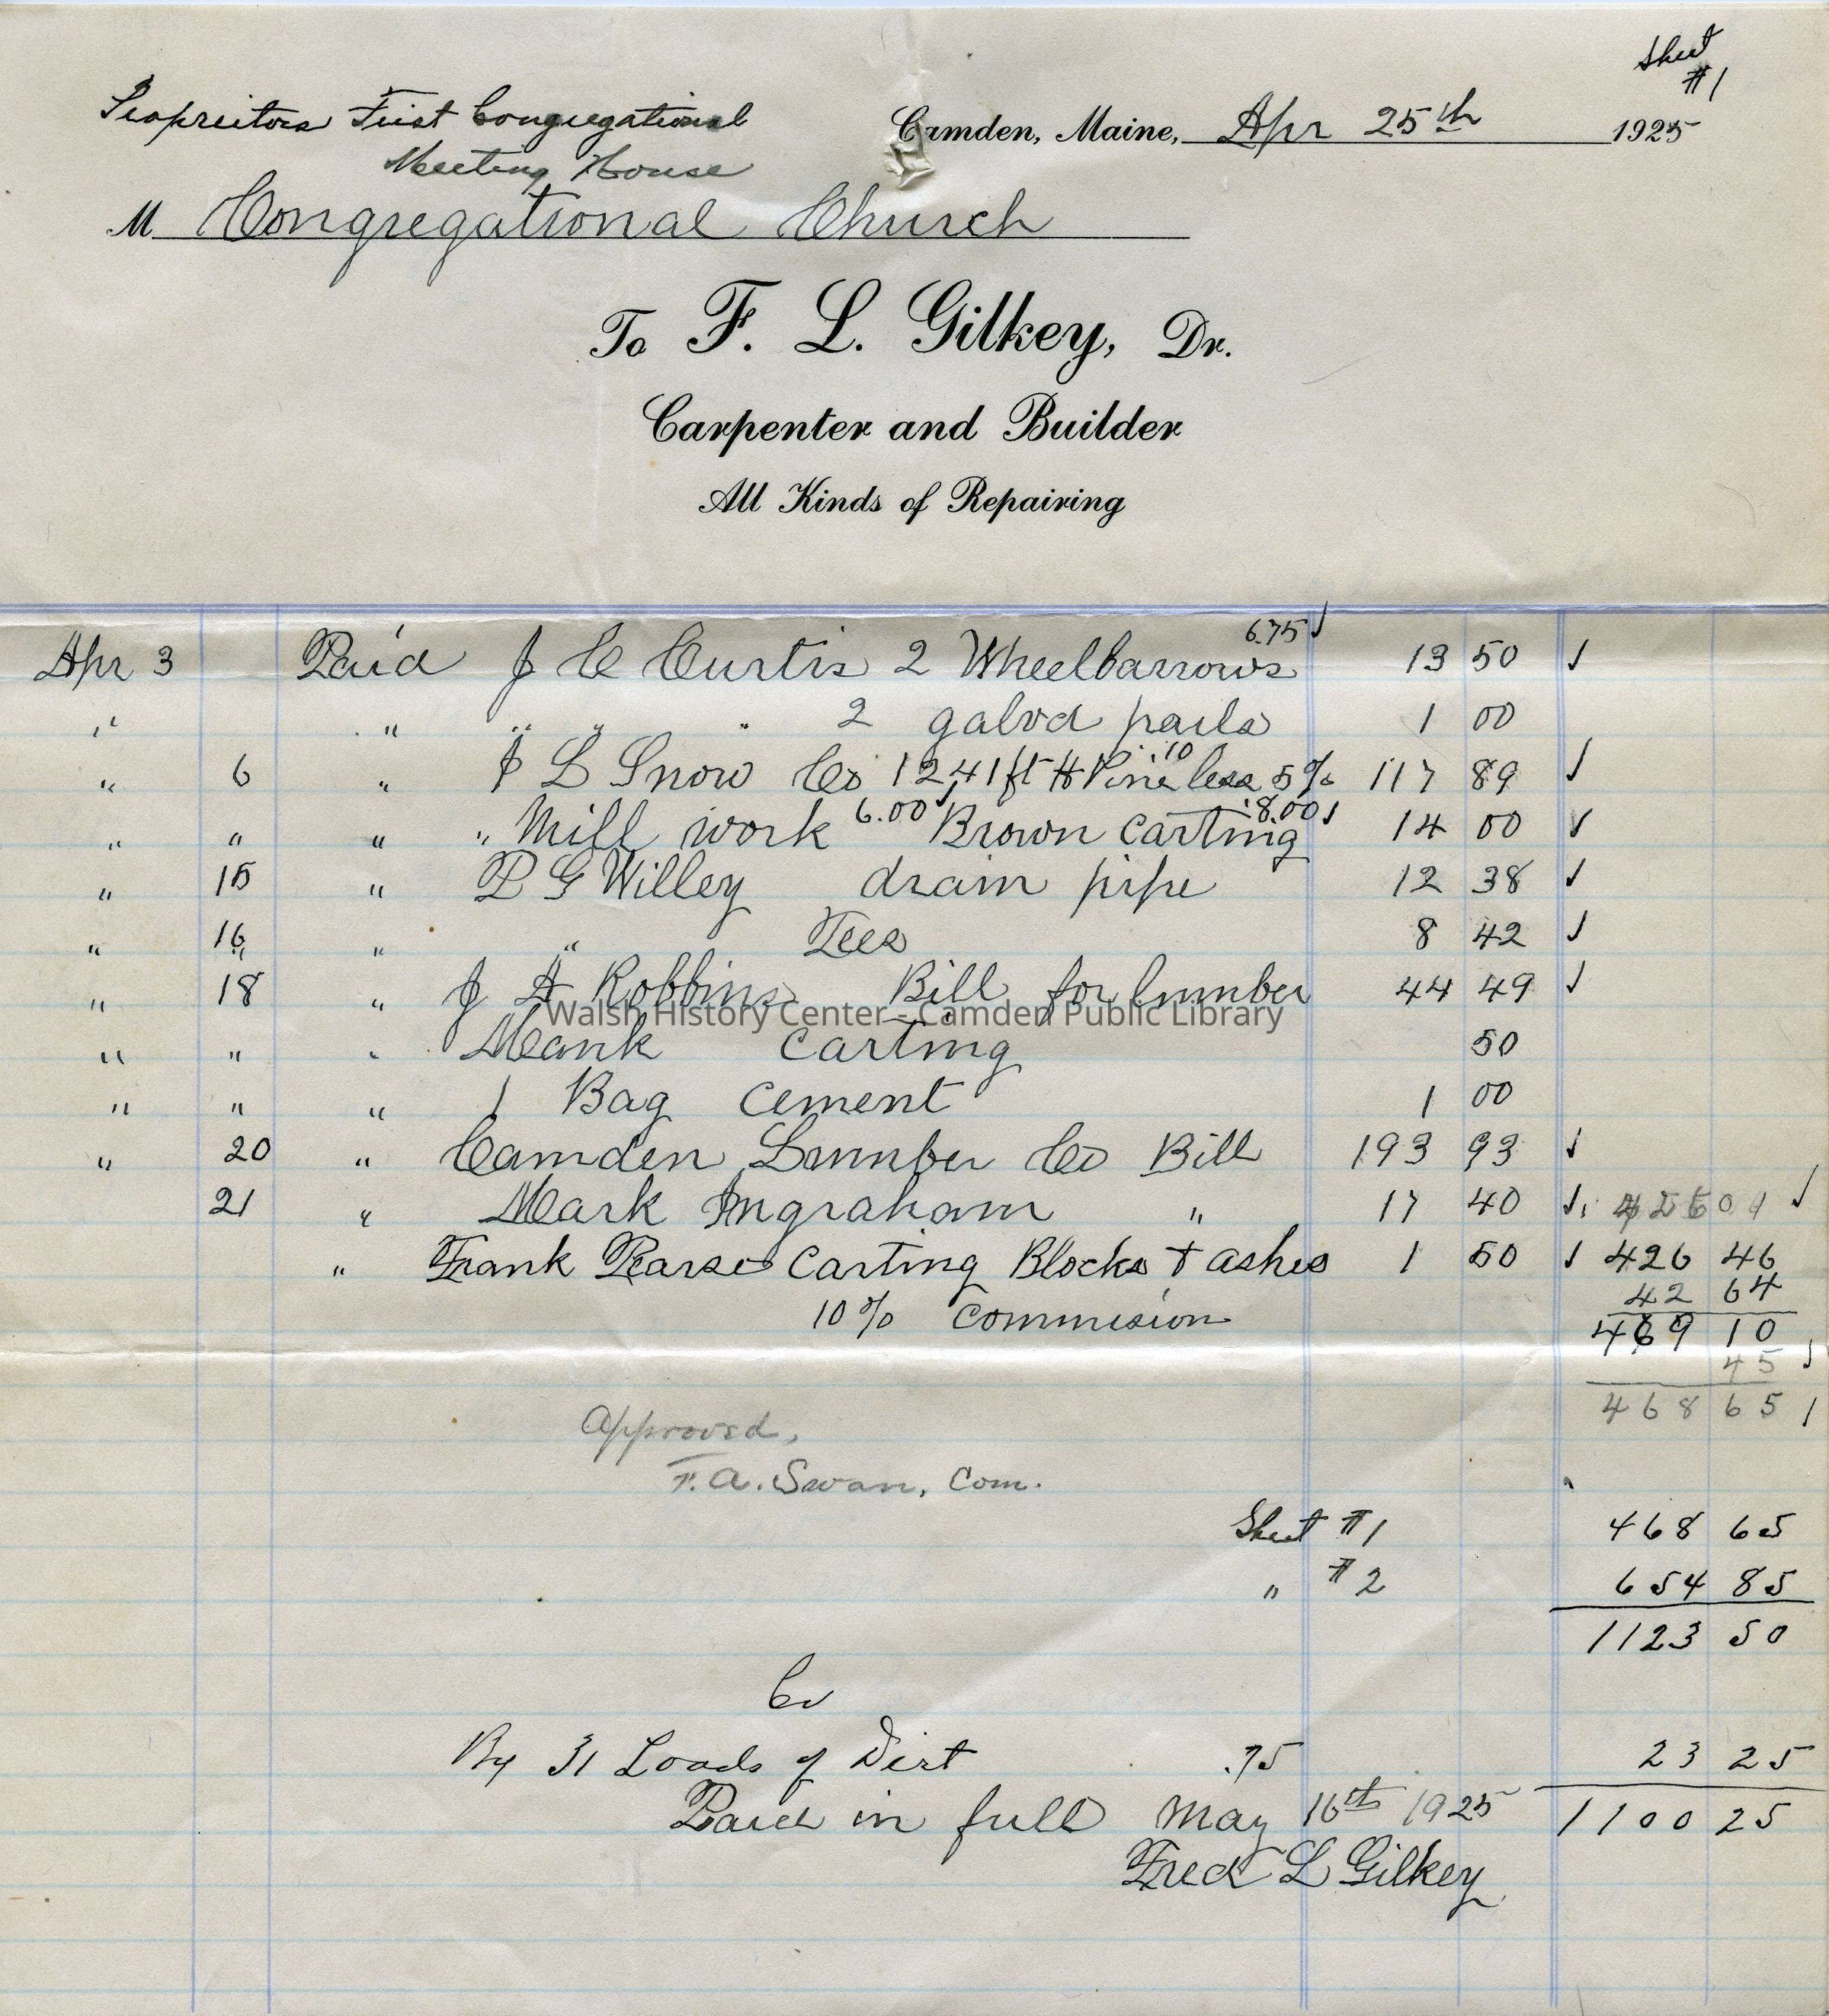 Sheet
#1
Propreitors First Congregational
Meeting House
Camden, Maine, Apr 25th 1925
M Congregational Church
To F. L. Gilkey, Dr.
Carpenter and Builder
All Kinds of Repairing
Apr 3 Paid J C Curtis 2 Wheelbarrows 6.75 13 50
" " " " " 2 galvd pails 1 00
" 6 " J L Snow Co 1241 ft H Pine .10 less 5% 117 89
" " " " Mill work 6.00 Brown Carting 8.00 14 00
" 15 " P G Willey drain pipe 12 38
" 16 " " Tees 8 42
" 18 " J A Robbins Bill for lumber 44 49
Walsh History Center - Camden Public Library
" " " Mank Carting 50
" " " 1 Bag Cement 1 00
" 20 " Camden Lumber Co Bill 193 93
21 " Mark Ingraham " 17 40 426 01
" Frank Pearse Carting Blocks + ashes 1 50 426 46
42 64
10% Commision 469 10
45
468 65
Approved,
F. A. Swan, Com.
Sheet #1 468 65
" #2 654 85
1123 50
Cr
By 31 Loads of Dirt .75 23 25
Paid in full May 16th 1925 1100 25
Fred L Gilkey